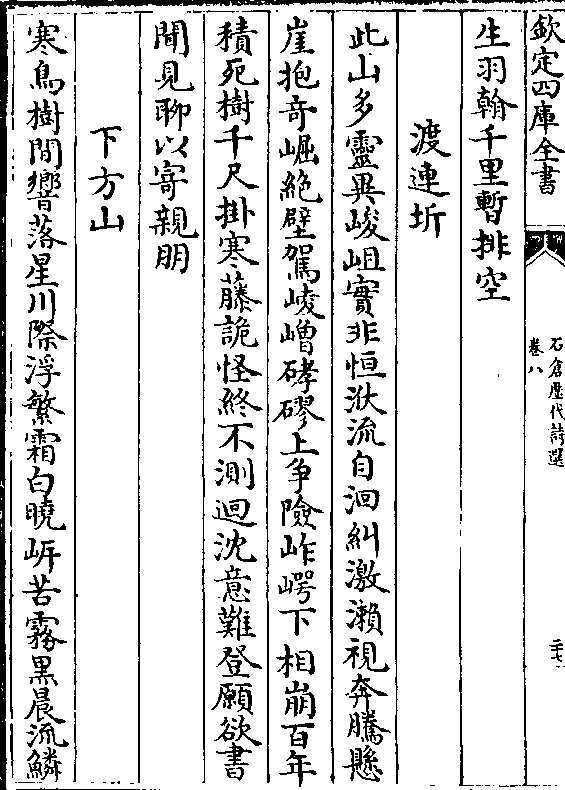 欽定四庫全書
石倉歷代詩選
卷八
二十七
生羽翰千里暫排空
渡連圻
此山多靈異峻岨實非恒洑流自洄糾激瀨視奔騰懸
崖抱奇崛絶壁駕崚嶒硣磟上争險岞崿下相崩百年
積死樹千尺掛寒藤詭怪終不測迴沈意難登願欲書
聞見聊以寄親朋
下方山
寒鳥樹間響落星川際浮繁霜白曉岍苦霧黒晨流鱗